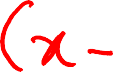 (x -